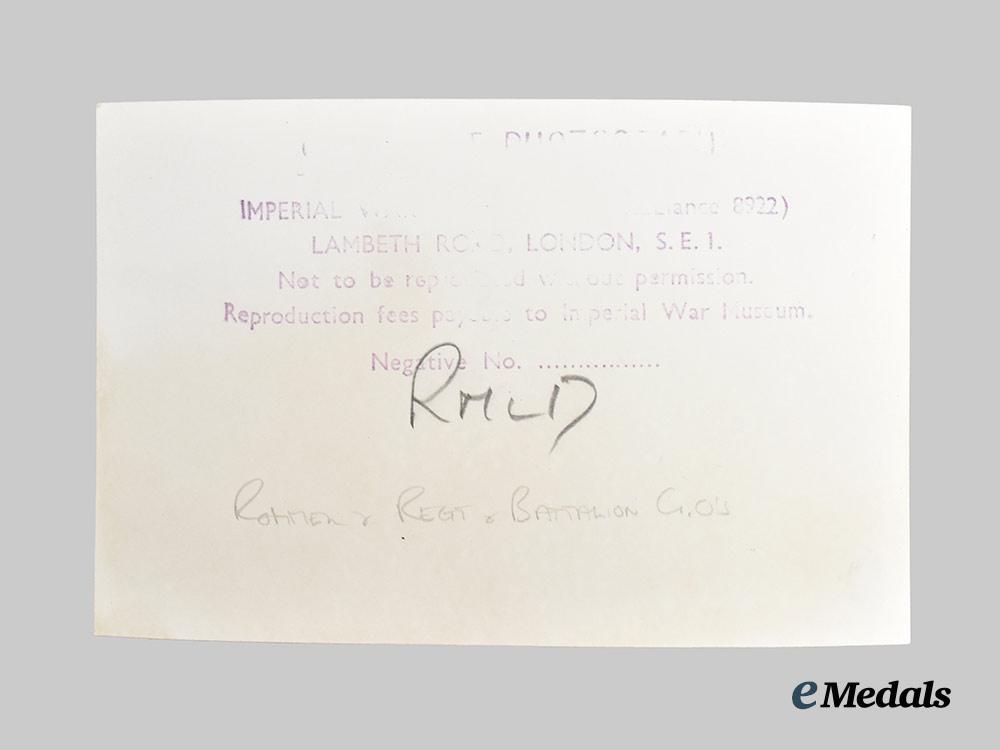 PHOTOGRAPH
IMPERIAL WAR 8922)
LAMBETH ROAD, LONDON, S.E.1.
Not to be reproduced without permission.
Reproduction fees payable to Imperial War Museum.
Negative No. ...............
RMLD
ROMMEL & REGT & BATTALION C.O'S
eMedals